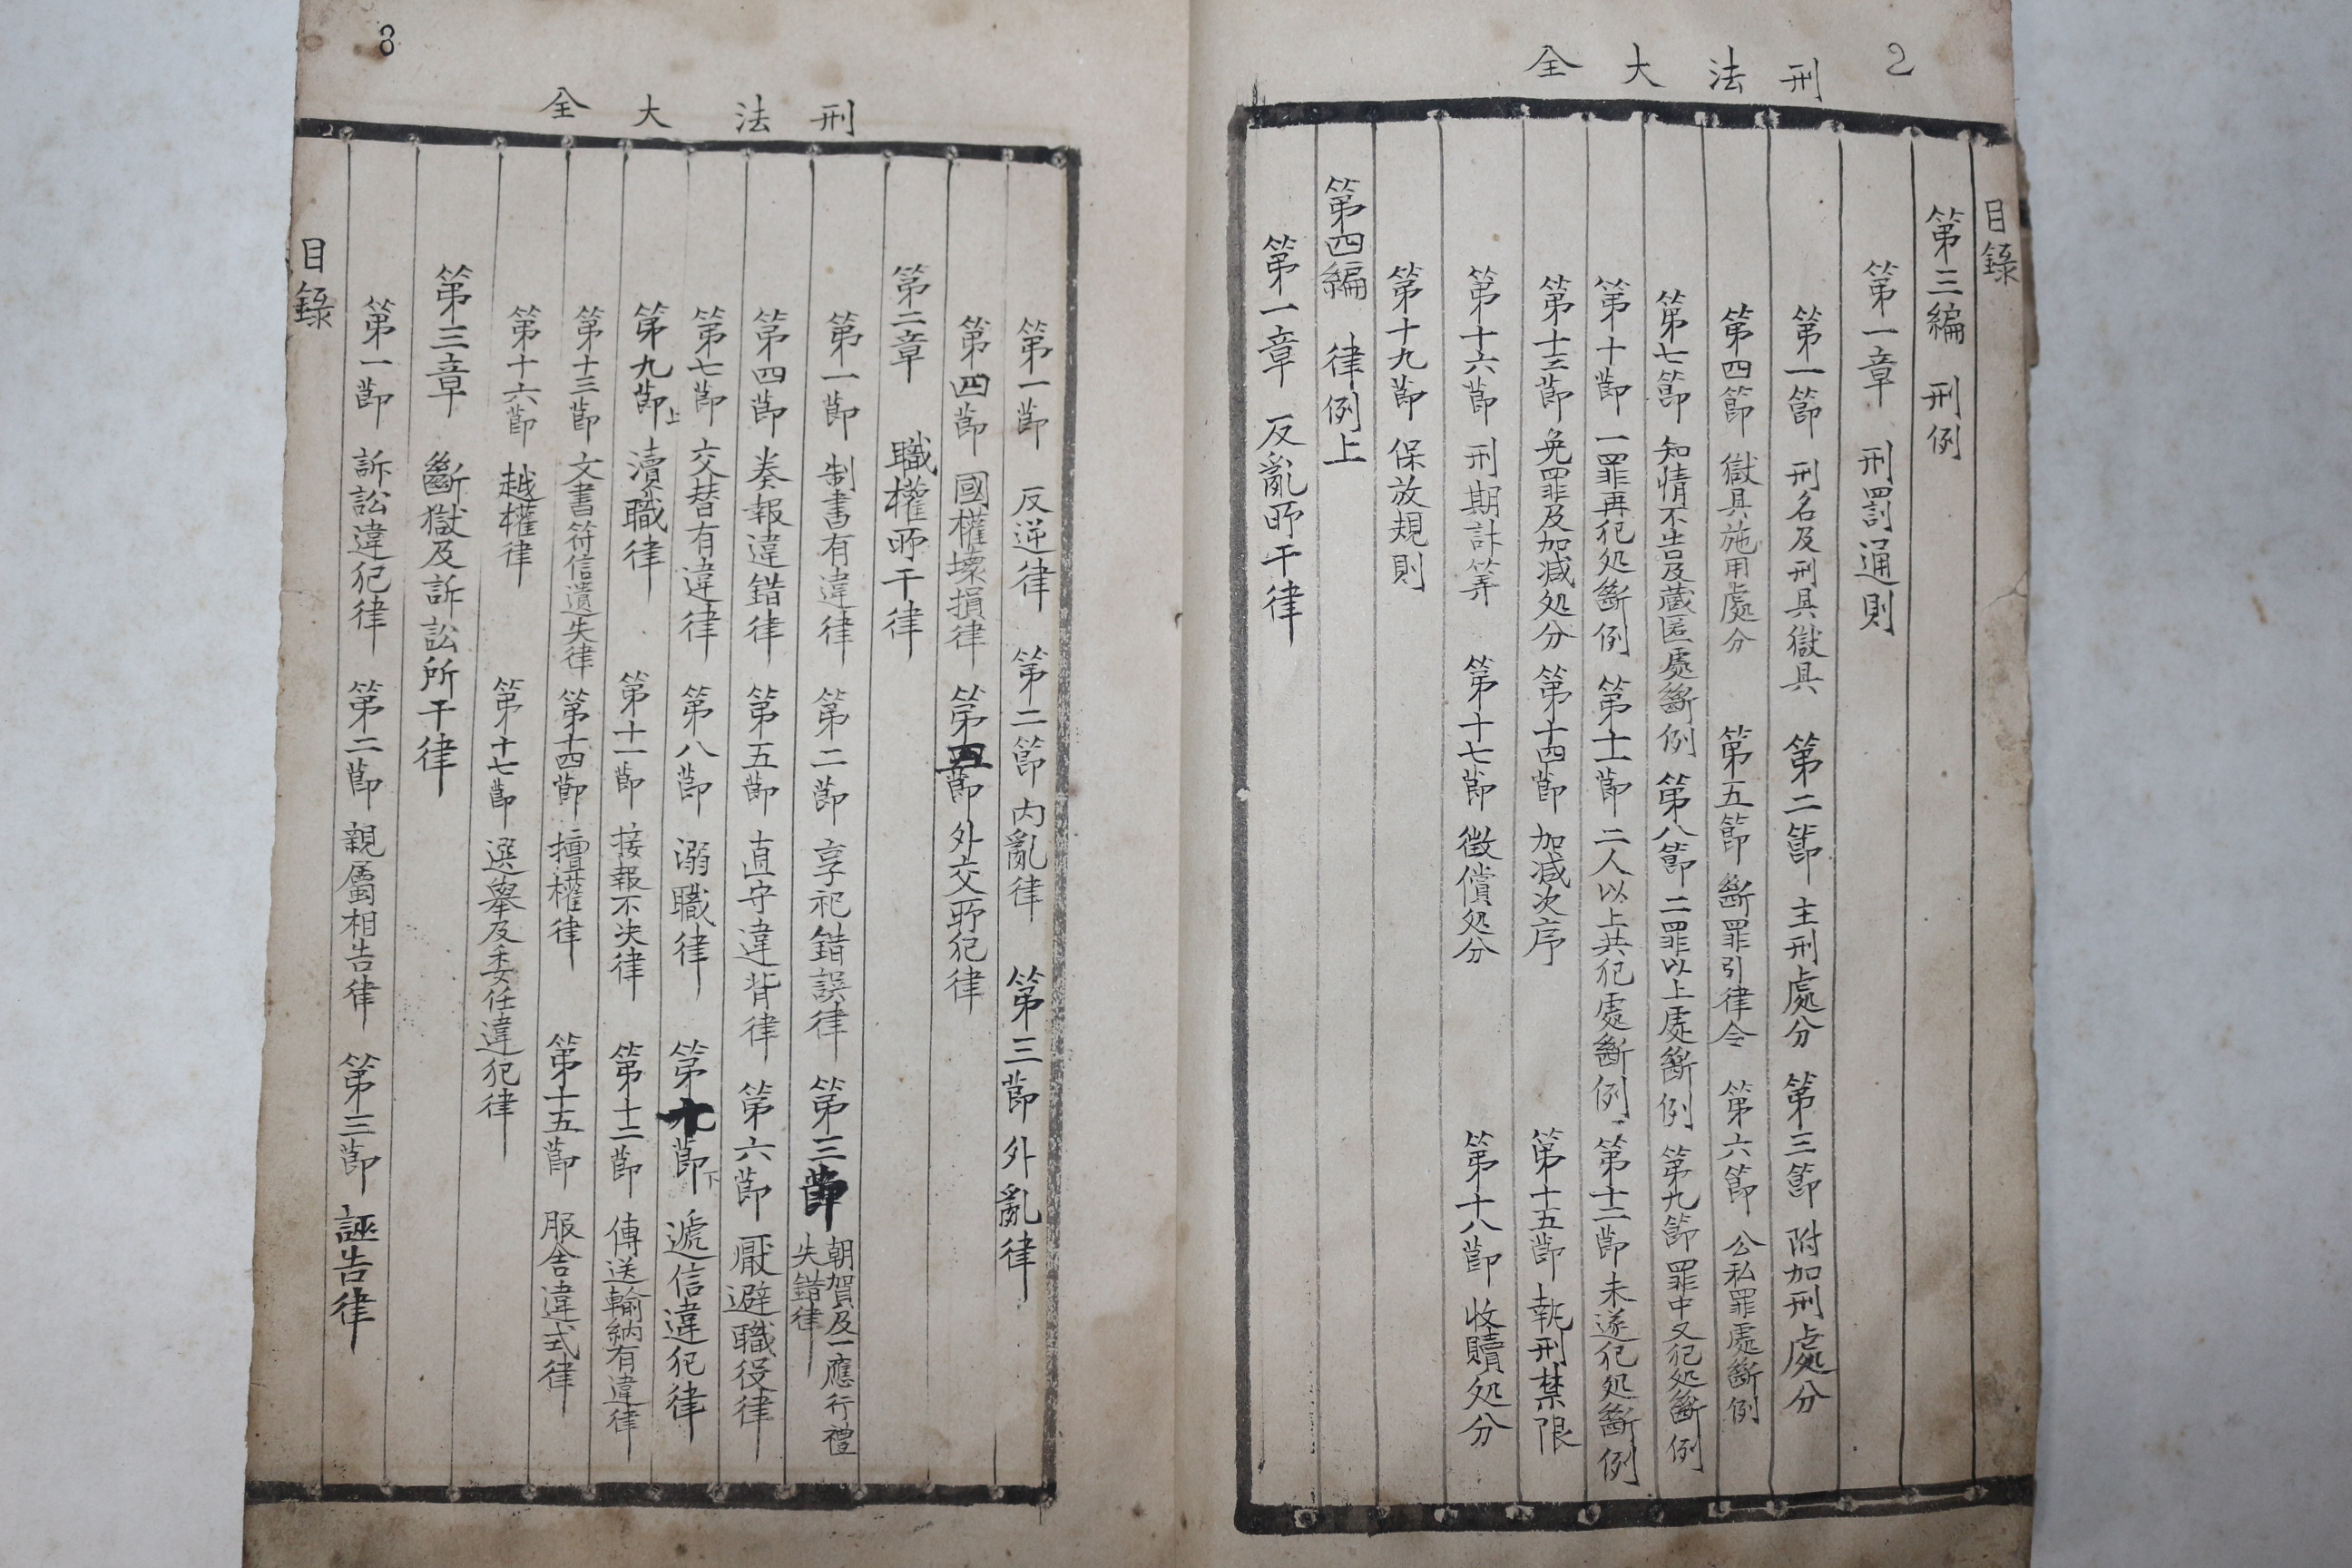 2
刑法大全
目錄
第三編 刑例
第一章 刑罰通則
第一節 刑名及刑具獄具 第二節 主刑處分 第三節 附加刑處分
第四節 獄具施用處分 第五節 斷罪引律令 第六節 公私罪處斷例
第七節 知情不告及蔵匿處斷例 第八節 二罪以上處斷例 第九節 罪中又犯処斷例
第十節 一罪再犯処斷例 第十一節 二人以上共犯處斷例 第十二節 未遂犯処斷例
第十三節 免罪及加減処分 第十四節 加減次序 第十五節 執刑禁限
第十六節 刑期計筭 第十七節 徵償処分 第十八節 收贖処分
第十九節 保放規則
第四編 律例上
第一章 反亂所干律
3
刑法大全
第一節 反逆律 第二節 内亂律 第三節 外亂律
第四節 國權壞損律 第五節 外交所犯律
第二章 職權所干律
第一節 制書有違律 第二節 享祀錯誤律 第三節 朝賀及一應行禮失錯律
第四節 奏報違錯律 第五節 直守違背律 第六節 厭避職役律
第七節 交替有違律 第八節 溺職律 第九節下 遞信違犯律
第九節上 瀆職律 第十一節 接報不决律 第十二節 傳送輸納有違律
第十三節 文書符信遺失律 第十四節 擅權律 第十五節 服舍違式律
第十六節 越權律 第十七節 選舉及委任違犯律
第三章 斷獄及訴訟所干律
第一節 訴訟違犯律 第二節 親屬相告律 第三節 誣告律
目錄